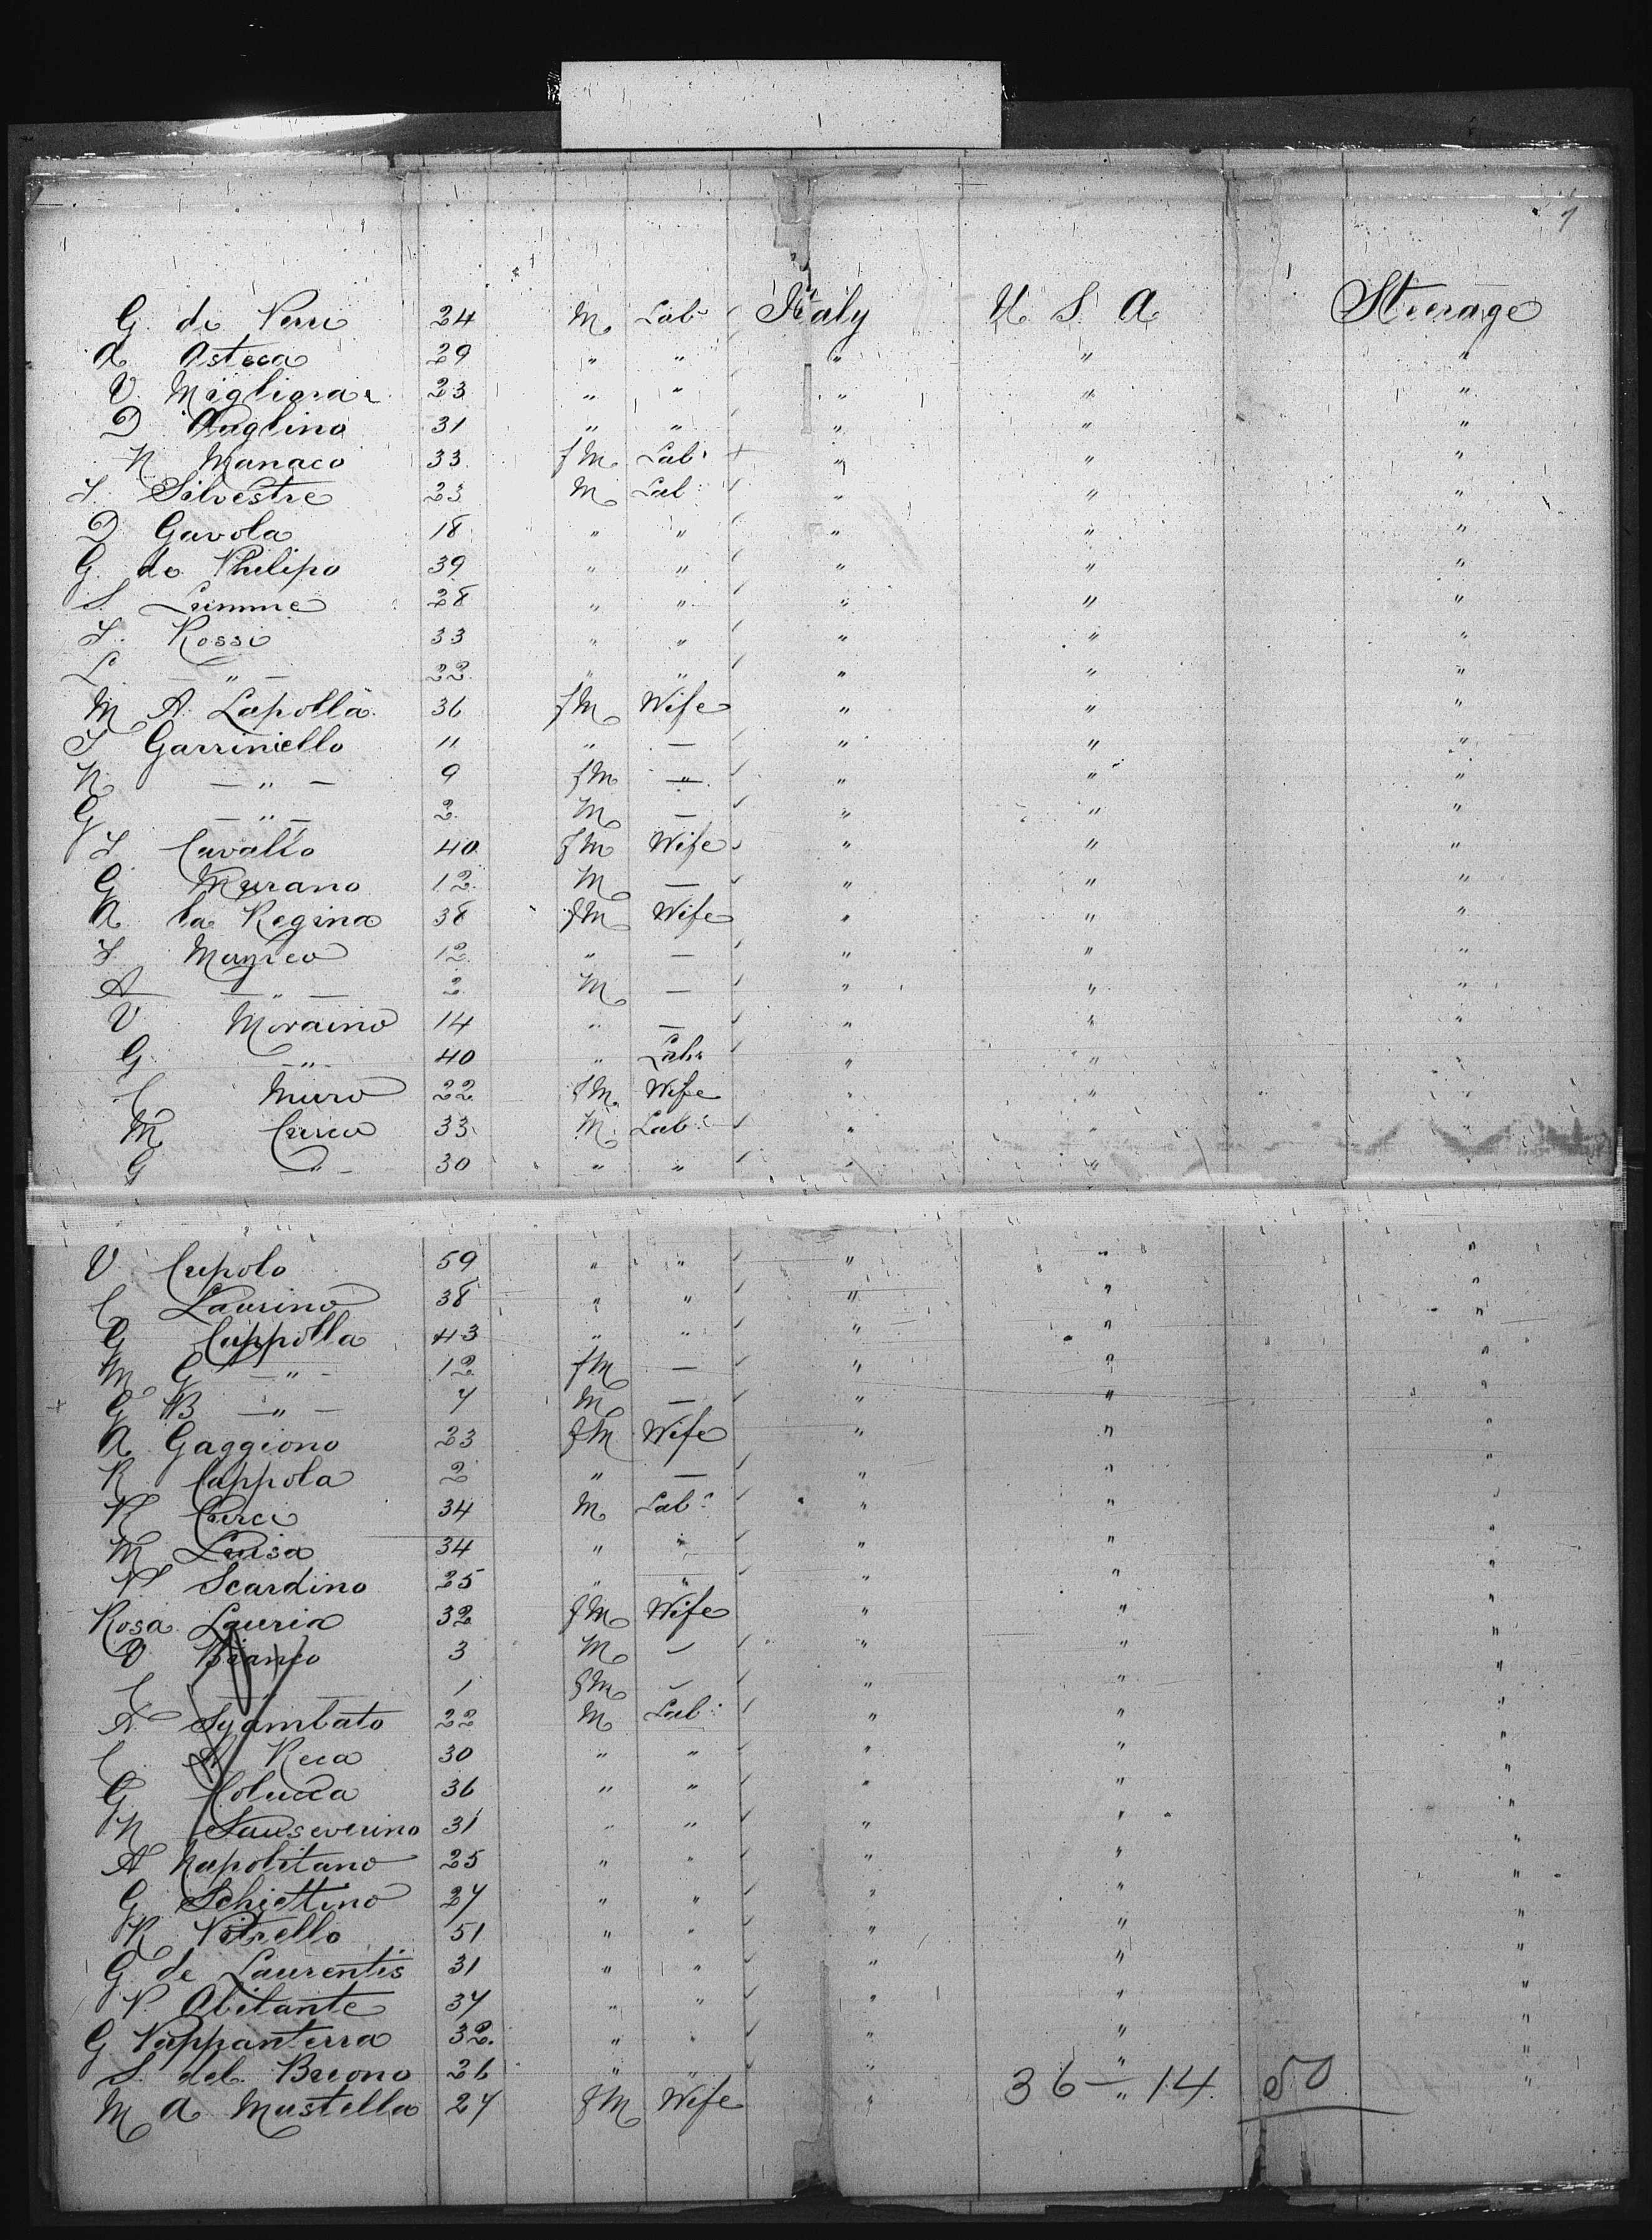 G. de Perri 24 M Lab Italy U S A Steerage
A Asteca 29 " " " " "
V. Migliora 23 " " " " "
D Paglino 31 " " " " "
N Manaco 33 fM Lab " " "
F. Silvestre 23 M Lab " " "
D Gavola 18 " " " " "
G. de Philipo 39 " " " " "
S. Lumme 28 " " " " "
F. Rossi 33 " " " " "
L — " — 22 " " " " "
M A Lapolla 36 fM Wife " " "
F Garriniello 11 " — " " "
N — " — 9 fM — " — " " "
G — " — 2 M — " " "
F Cavallo 40 fM Wife " " "
G Murano 12 M — " " "
A la Regina 38 fM Wife " " "
F. 12 " — " " "
A — " — 2 M — " " "
V Moraino 14 " — " " "
G — " — 40 " Lab " " "
C Muro 22 fM Wife " " "
M Curcio 33 M Lab " "
G — " — 30 " " " "
V Cupolo 59 " " " " "
C Laurino 38 " " " " "
G Cuppolla 43 " " " " "
M G — " — 12 fM — " " "
G B — " — 7 M — " " "
A Gaggiono 23 fM Wife " " "
R Cappola 2 " — " " "
V Curci 34 M Lab " " "
M Luisa 34 " " " " "
P Scardino 25 " " " " "
Rosa Lauria 32 fM Wife " " "
V Bianco 3 M — " " "
C — " — 1 fM — " " "
A Sgambato 22 M Lab " " "
C A Reca 30 " " " " "
G Colucca 36 " " " " "
N Sanseverino 31 " " " " "
A Napolitano 25 " " " " "
G Schiettino 27 " " " " "
R Vitrello 51 " " " " "
G. de Laurentis 31 " " " " "
P. Abitante 37 " " " " "
G Pappanterra 32. " " " " "
S. del Buono 26 " " " " "
M A Mustella 27 fM Wife " " 36 — 14. 50